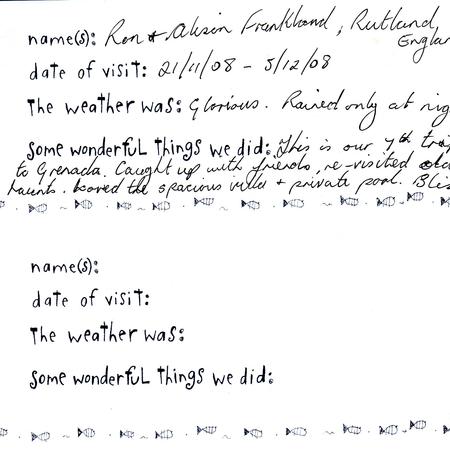 name(s): Ron + Alison Frankland, Rutland,
Englan
date of visit: 21/11/08 - 5/12/08
The weather was: Glorious. Rained only at nig
some wonderful things we did: This is our 7th trip
to Grenada. Caught up with friends, re-visited old
haunts. Loved the spacious villa + private pool. Blis
name(s):
date of visit:
The weather was:
some wonderful things we did: